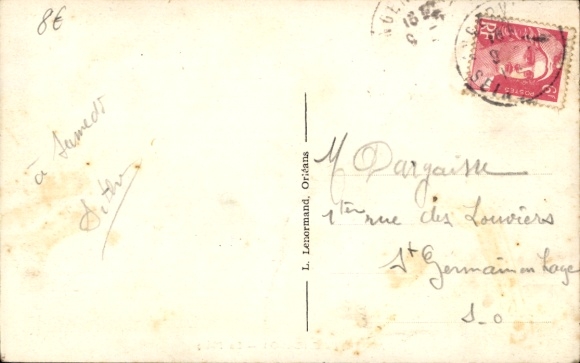 8€
à Samedi
L. Lenormand, Orléans
RF
POSTES
M Dargaisse
1ter rue des Louviers
St Germain en Laye
S-O